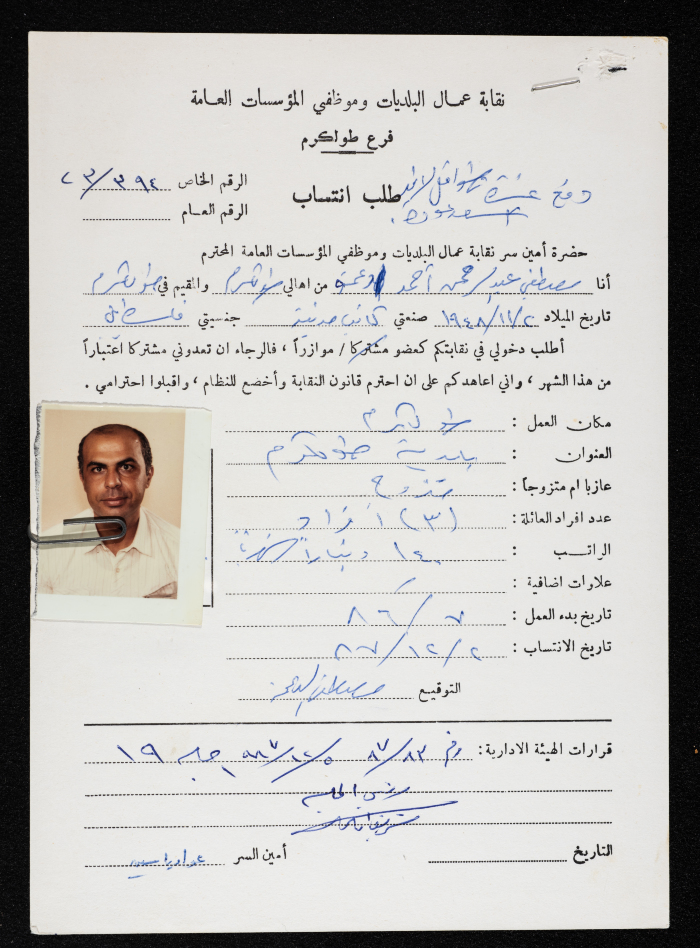 نقابة عمال البلديات وموظفي المؤسسات العامة
فرع طولكرم
الرقم الخاص ٣/٣٩٤
الرقم العام
طلب انتساب
دفع عشرة
حضرة أمين سر نقابة عمال البلديات وموظفي المؤسسات العامة المحترم
أنا مصطفى عبدالرحمن أحمد من اهالي طولكرم والمقيم في طولكرم
تاريخ الميلاد ١٩٤٨/١١/٢ صنعتي كاتب جنسيتي فلسطيني
أطلب دخولي في نقابتكم كعضو مشتركا / موازراً ، فالرجاء ان تعدوني مشتركا اعتباراً
من هذا الشهر ، واني اعاهدكم على ان احترم قانون النقابة وأخضع للنظام ، واقبلوا احترامي .
مكان العمل : طولكرم
العنوان : بلدية طولكرم
عازبا ام متزوجاً : متزوج
عدد افراد العائلة : (٣) افراد
الراتب : ١٤٠ ديناراً
علاوات اضافية : /
تاريخ بدء العمل : ٨٦/٧
تاريخ الانتساب : ٨٧/١٢/٢
التوقيع
قرارات الهيئة الادارية : رقم ٨٧/٨٣ ٩٨٧/١٢/٥ جلسة ١٩
رئيس الجلسة
التاريخ
أمين السر